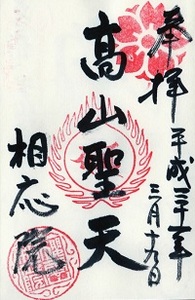 奉拝
平成三十一年
三月十九日
高山聖天
相応院